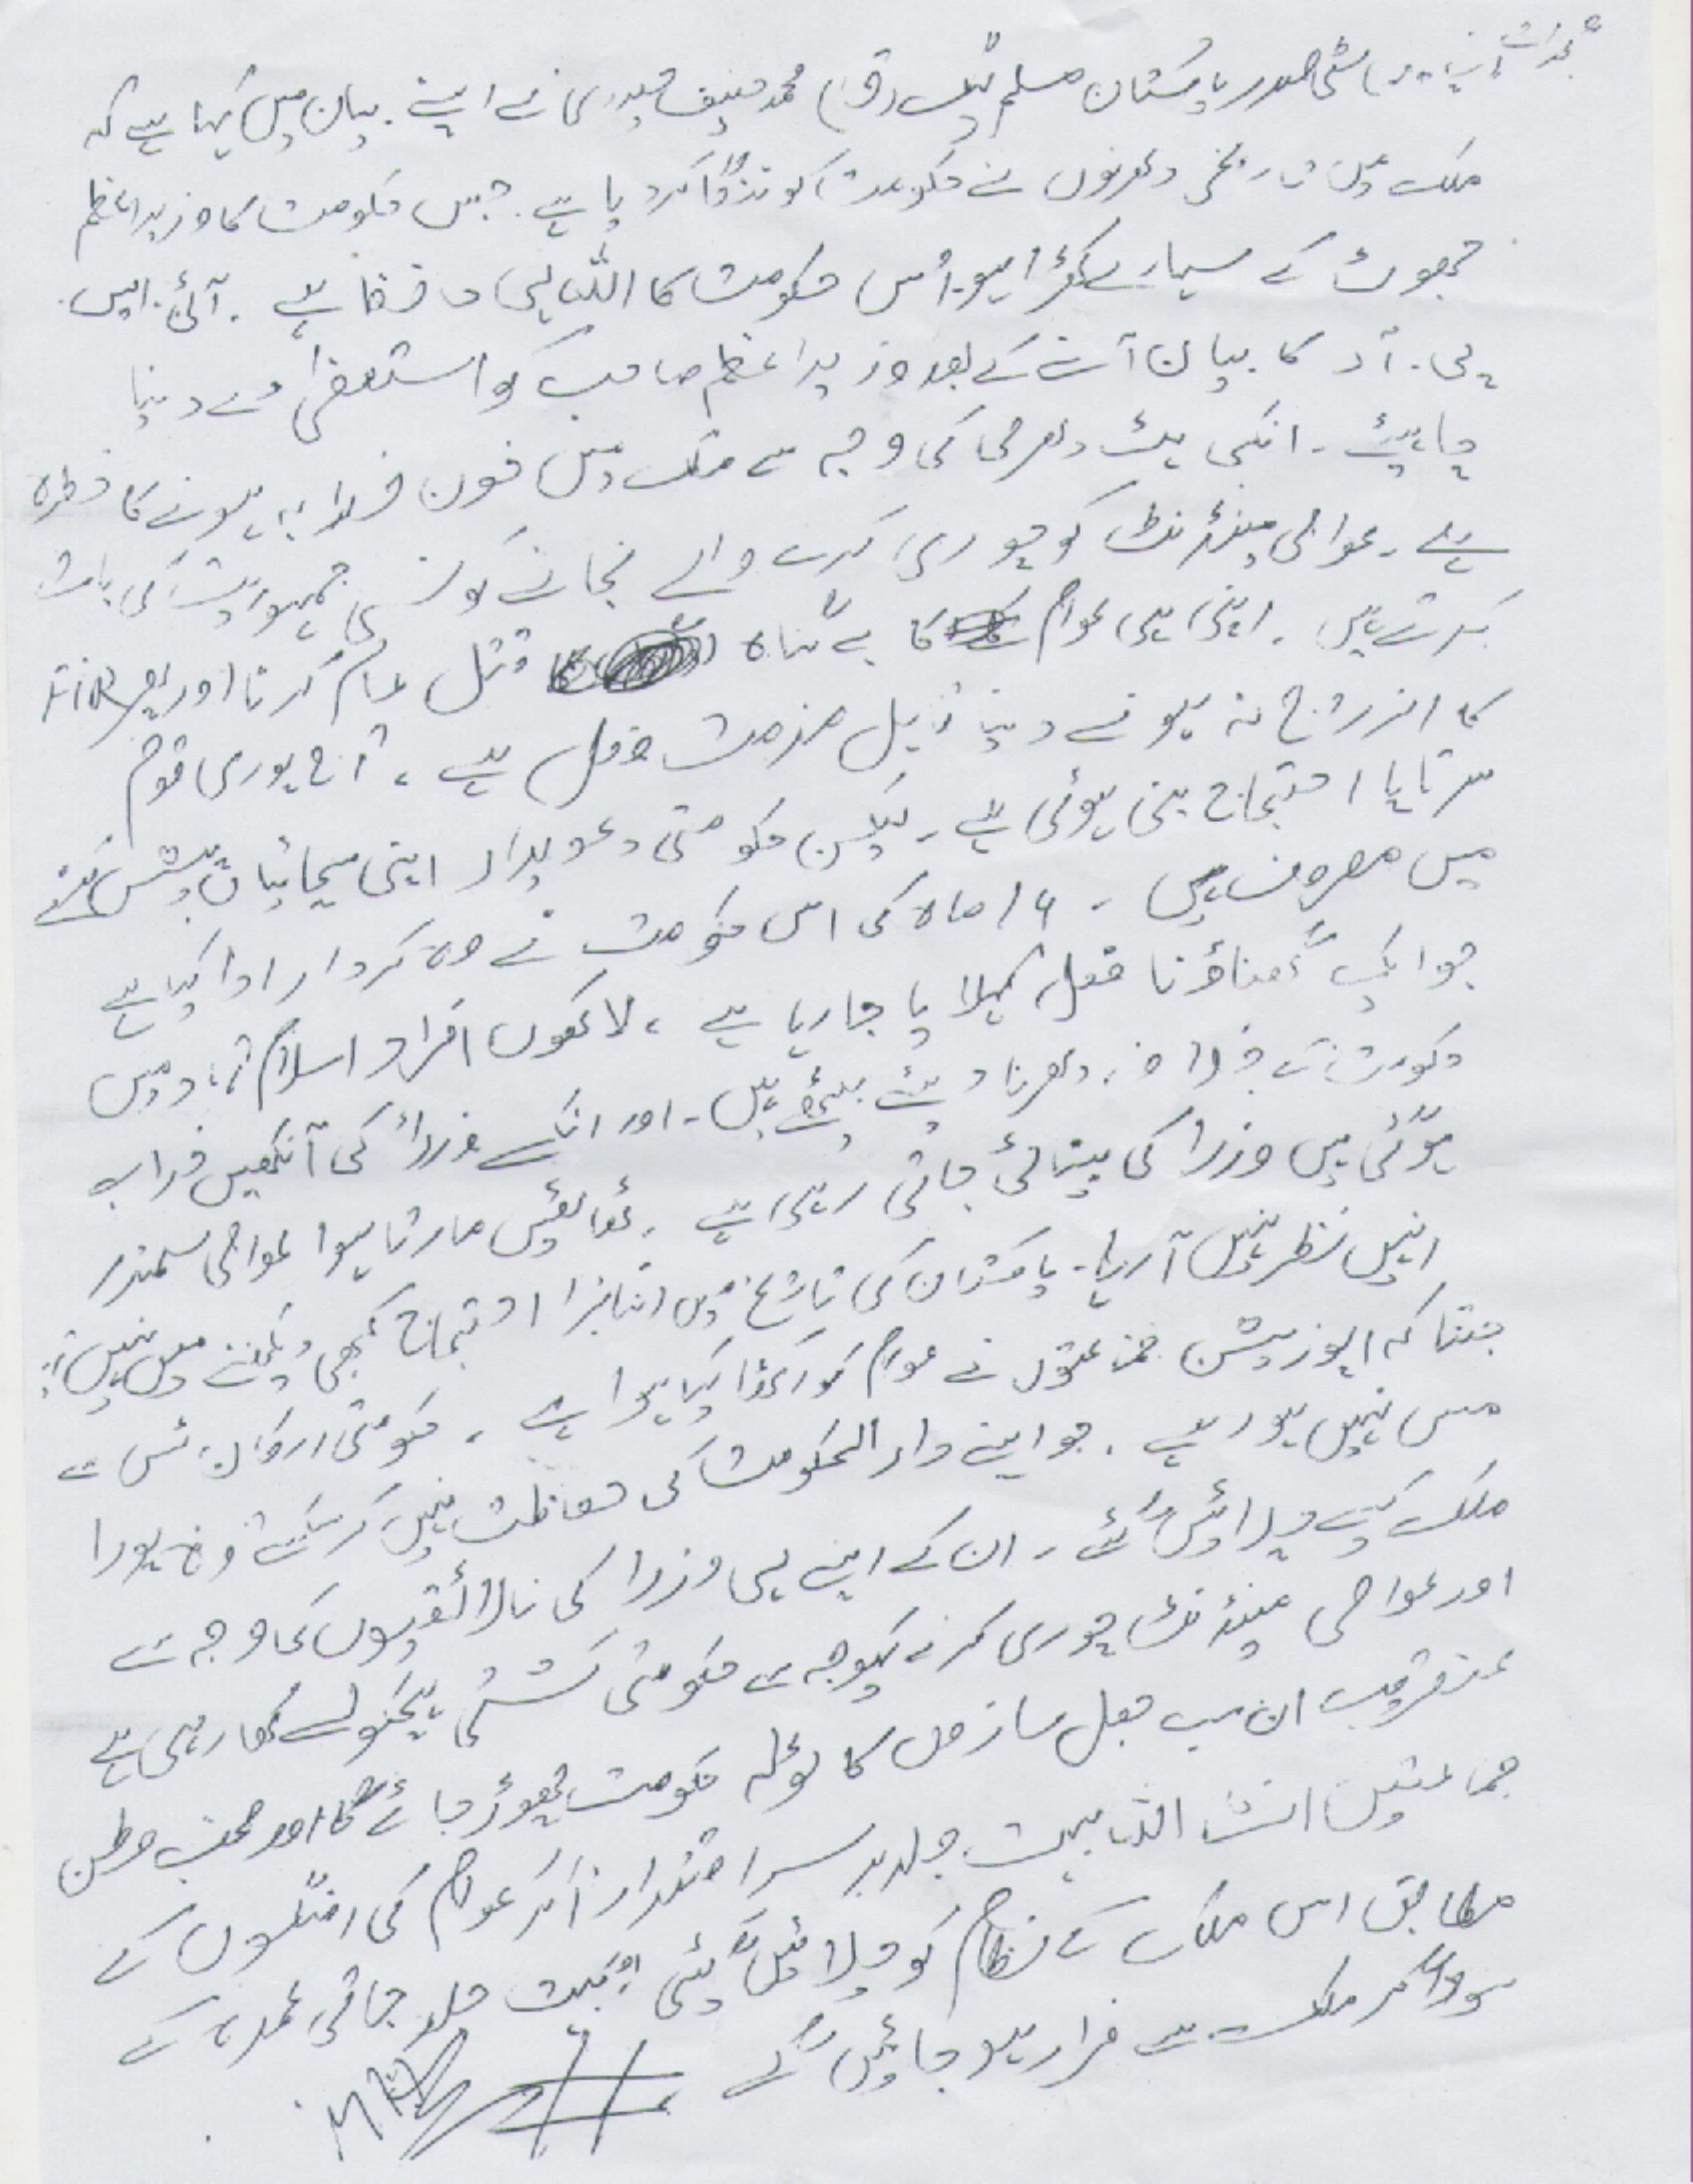 گجرات سٹی صدر پاکستان مسلم لیگ (ق) محمد حنیف حیدری نے اپنے بیان میں کہا ہے کہ
ملک میں تاریخی دھرنوں نے حکومت کو ننگا کر دیا ہے۔ جس حکومت کا وزیراعظم
جھوٹ کے سہارے کھڑا ہو اُس حکومت کا اللہ ہی حافظ ہے۔ آئی۔ ایس۔
پی۔ آر کا بیان آنے کے بعد وزیراعظم صاحب کو استعفیٰ دے دینا
چاہیئے۔ انکی ہٹ دھرمی کی وجہ سے ملک میں خون خرابہ ہونے کا خطرہ
ہے۔ عوامی مینڈنٹ کو چوری کرنے والے نجانے کونسی جمہوریت کی بات
کرتے ہیں۔ اپنی ہی عوام کا بے گناہ قتل عام کرنا اور پھر FIR
کا اندراج نہ ہونے دینا قابل مذمت فعل ہے، آج پوری قوم
سرتاپا احتجاج بنی ہوئی ہے۔ لیکن حکومتی دعویدار اپنی سچائیاں پیش کرنے
میں مصروف ہیں۔ 16 ماہ کی اس حکومت نے وہ کردار ادا کیا ہے
جو ایک گھناؤنا فعل کہلایا جا رہا ہے، لاکھوں افراد اسلام آباد میں
حکومت کے خلاف دھرنا دیئے بیٹھے ہیں۔ اور انکے وزراء کی آنکھیں خراب
ہوگئی ہیں وزرا کی بینائی جاتی رہی ہے۔ ٹھاٹھیں مارتا ہوا عوامی سمندر
انہیں نظر نہیں آ رہا۔ پاکستان کی تاریخ میں اتنا بڑا احتجاج کبھی دیکھنے میں نہیں آیا
جتنا کہ اپوزیشن جماعتوں نے عوام کو اکٹھا کیا ہوا ہے، حکومتی ارکان ٹس سے
مس نہیں ہو رہے۔ جو اپنے دارالحکومت کی حفاظت نہیں کر سکتے وہ پورا
ملک کیسے چلائیں گے۔ ان کے اپنے ہی وزرا کی نالائقیوں کی وجہ سے
اور عوامی مینڈنٹ چوری کرنے کیوجہ سے حکومتی کشتی ہچکولے کھا رہی ہے
عنقریب ان سب جعل سازوں کا ٹولہ حکومت چھوڑ جائے گا اور محب وطن
جماعتیں انشاءاللہ بہت جلد برسراقتدار آکر عوام کی امنگوں کے
مطابق اس ملک کے نظام کو چلائیں گئی بہت جلد جاتی عمرہ کے
سوداگر ملک سے فرار ہو جائیں گے